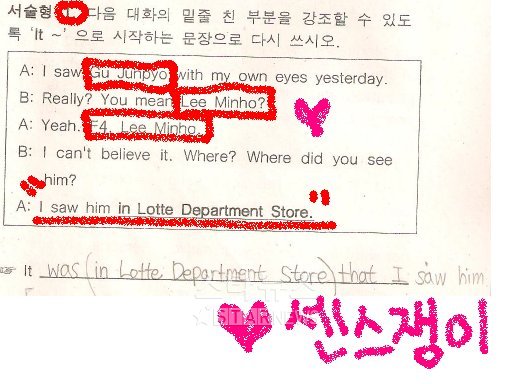 서술형 다음 대화의 밑줄 친 부분을 강조할 수 있도
록 'It ~' 으로 시작하는 문장으로 다시 쓰시오.
A: I saw Gu Junpyo with my own eyes yesterday.
B: Really? You mean Lee Minho?
A: Yeah. F4, Lee Minho.
B: I can't believe it. Where? Where did you see
him?
A: I saw him in Lotte Department Store.
☞ It was (in Lotte Department Store) that I saw him
STARNEWS
센스쟁이